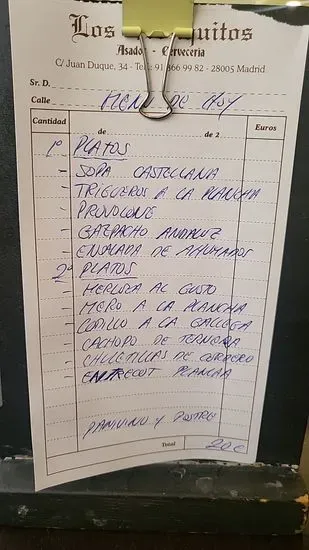 Los
Asador - Cerveceria
C/ Juan Duque, 34 - Tel.: 91 366 99 82 - 28005 Madrid
Sr. D.
Calle MENU DE HOY
Cantidad de de 2 Euros
1º PLATOS
- SOPA CASTELLANA
- TRIGUEROS A LA PLANCHA
- PROVOLONE
- GAZPACHO ANDALUZ
- ENSALADA DE AHUMADOS
2º PLATOS
- MERLUZA AL GUSTO
- MERO A LA PLANCHA
- CODILLO A LA GALLEGA
- CACHOPO DE TERNERA
- CHULETILLAS DE CORDERO
- ENTRECOT PLANCHA
PAN VINO Y POSTRE
Total 20€